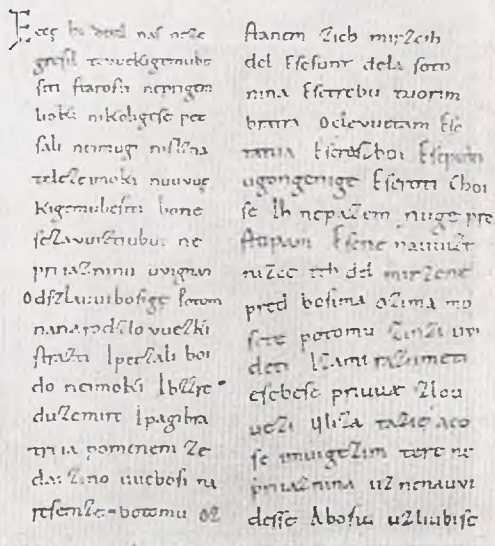 Ecce bi detd nas neze
gresil tevuekigemube
siti starosti neprigem
lioki nikoligese pet
sali neimugi nislzna
telezeimoki nuuvue
kigemubesiti bone
sezavuiztiubui ne
priiaznina uvignan
Odszlauuibosige Potom
nanarodzlovuezki
strazti Ipetzali boi
do neimoki Ibzzre
duzemirt Ipagibra
triia pomenem ze
dazino uuebosi na
resemze botomu oz
stanem zich mirzcih
del Esesunt dela soto
nina Esetrebu tuorim
bratra Oclevuetam Ese
tatua Eserazboi Esepulti
ugongenige Eseroti Choi
se Ih nepazem nuge pre
stopam Esene nauuizt
nizce teh del mirzene
pred bosima ozima mo
sete potomu zinzi uvi
deti Izami razumeti
esebese priuuae zlou
uezi Uliza tazie aco
se imuigezim tere ne
priiaznina uznenauvi
desse Abosiu uzliubise